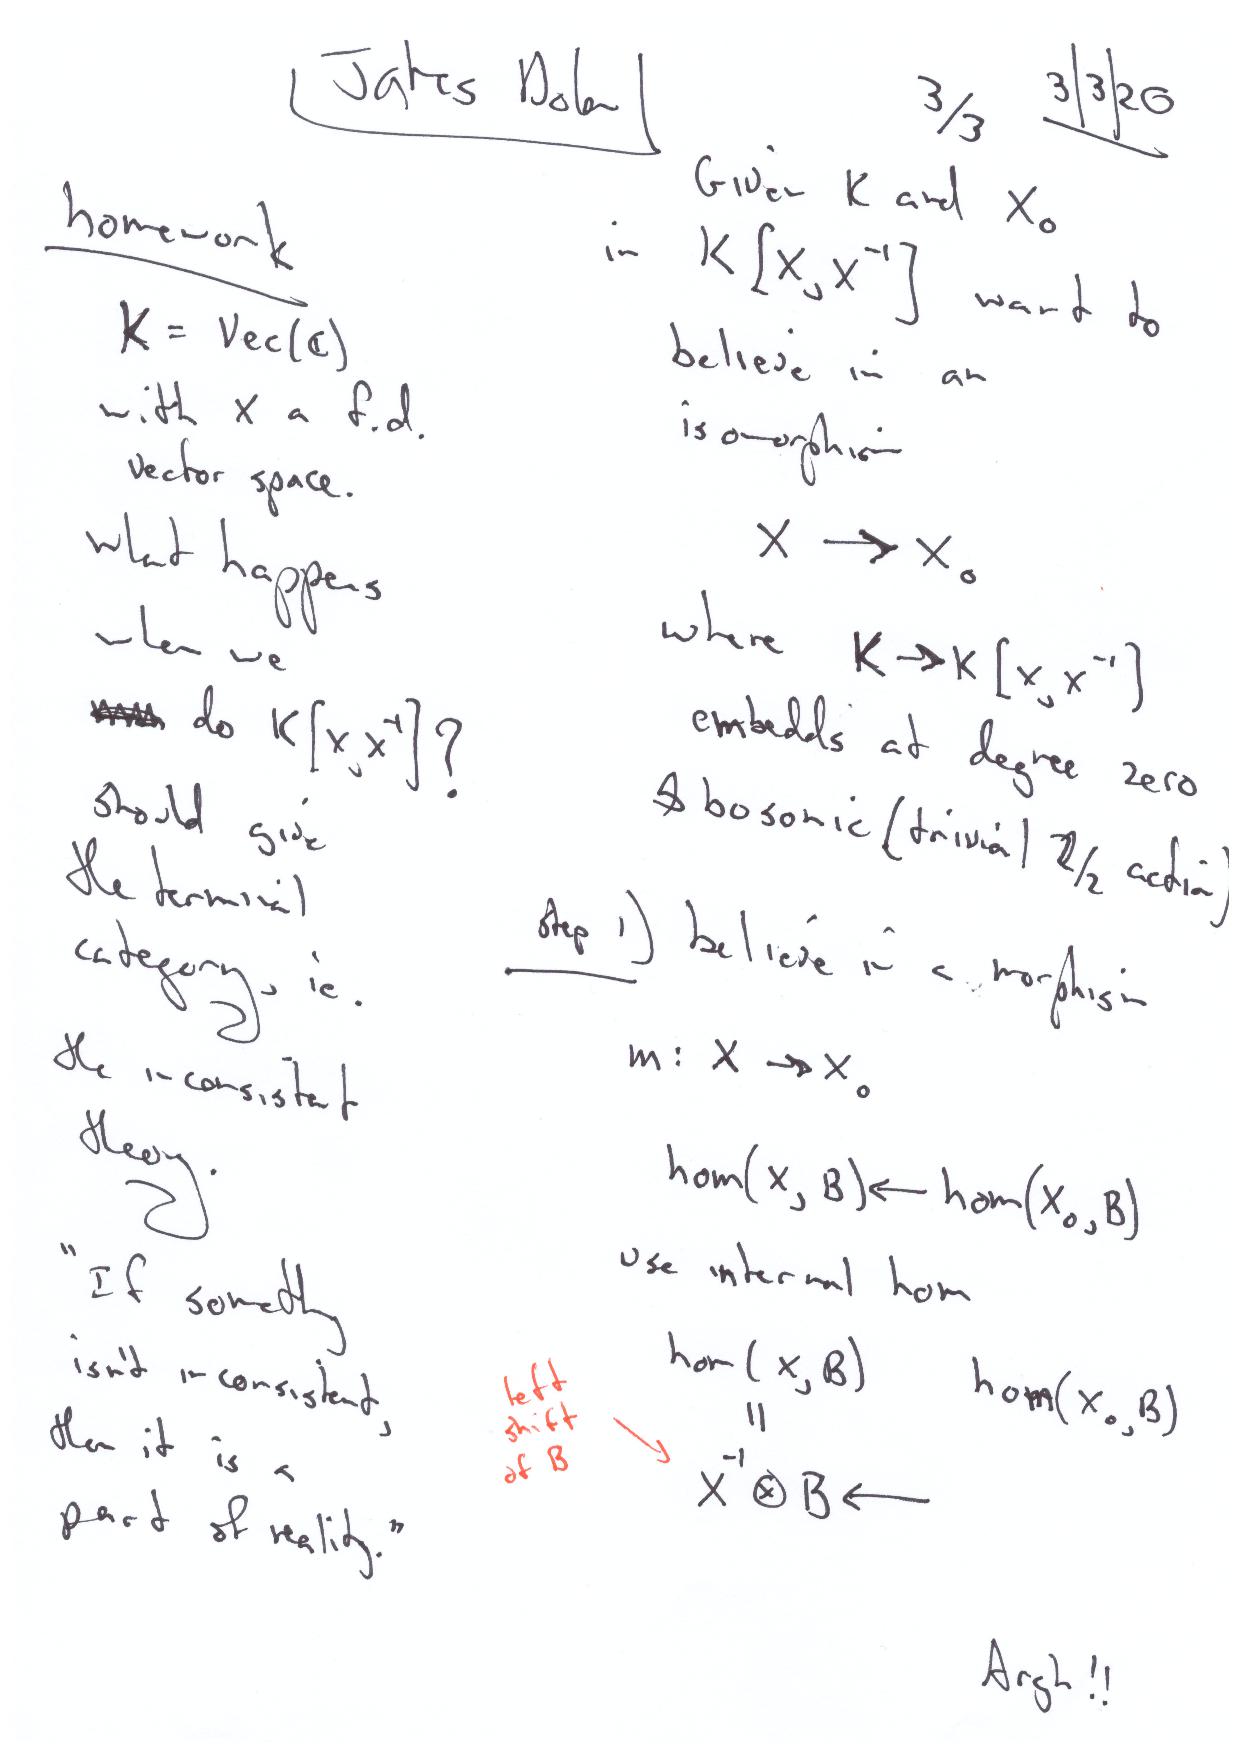 James Dolan
3/3
3/3/20
homework
K = Vec(ℂ)
with X a f.d.
vector space.
what happens
when we
do K[X, X⁻¹]?
should give
the terminal
category, ie.
the inconsistent
theory.
"If something
isn't inconsistent,
then it is a
part of reality."
Given K and X₀
in K[X, X⁻¹] want to
believe in an
isomorphism
X → X₀
where K → K[X, X⁻¹]
embedds at degree zero
& bosonic (trivial ℤ/2 action)
Step 1) believe in a morphism
m: X → X₀
hom(X, B) ← hom(X₀, B)
use internal hom
hom(X, B) hom(X₀, B)
||
X⁻¹ ⊗ B ←
left
shift
of B
Argh!!